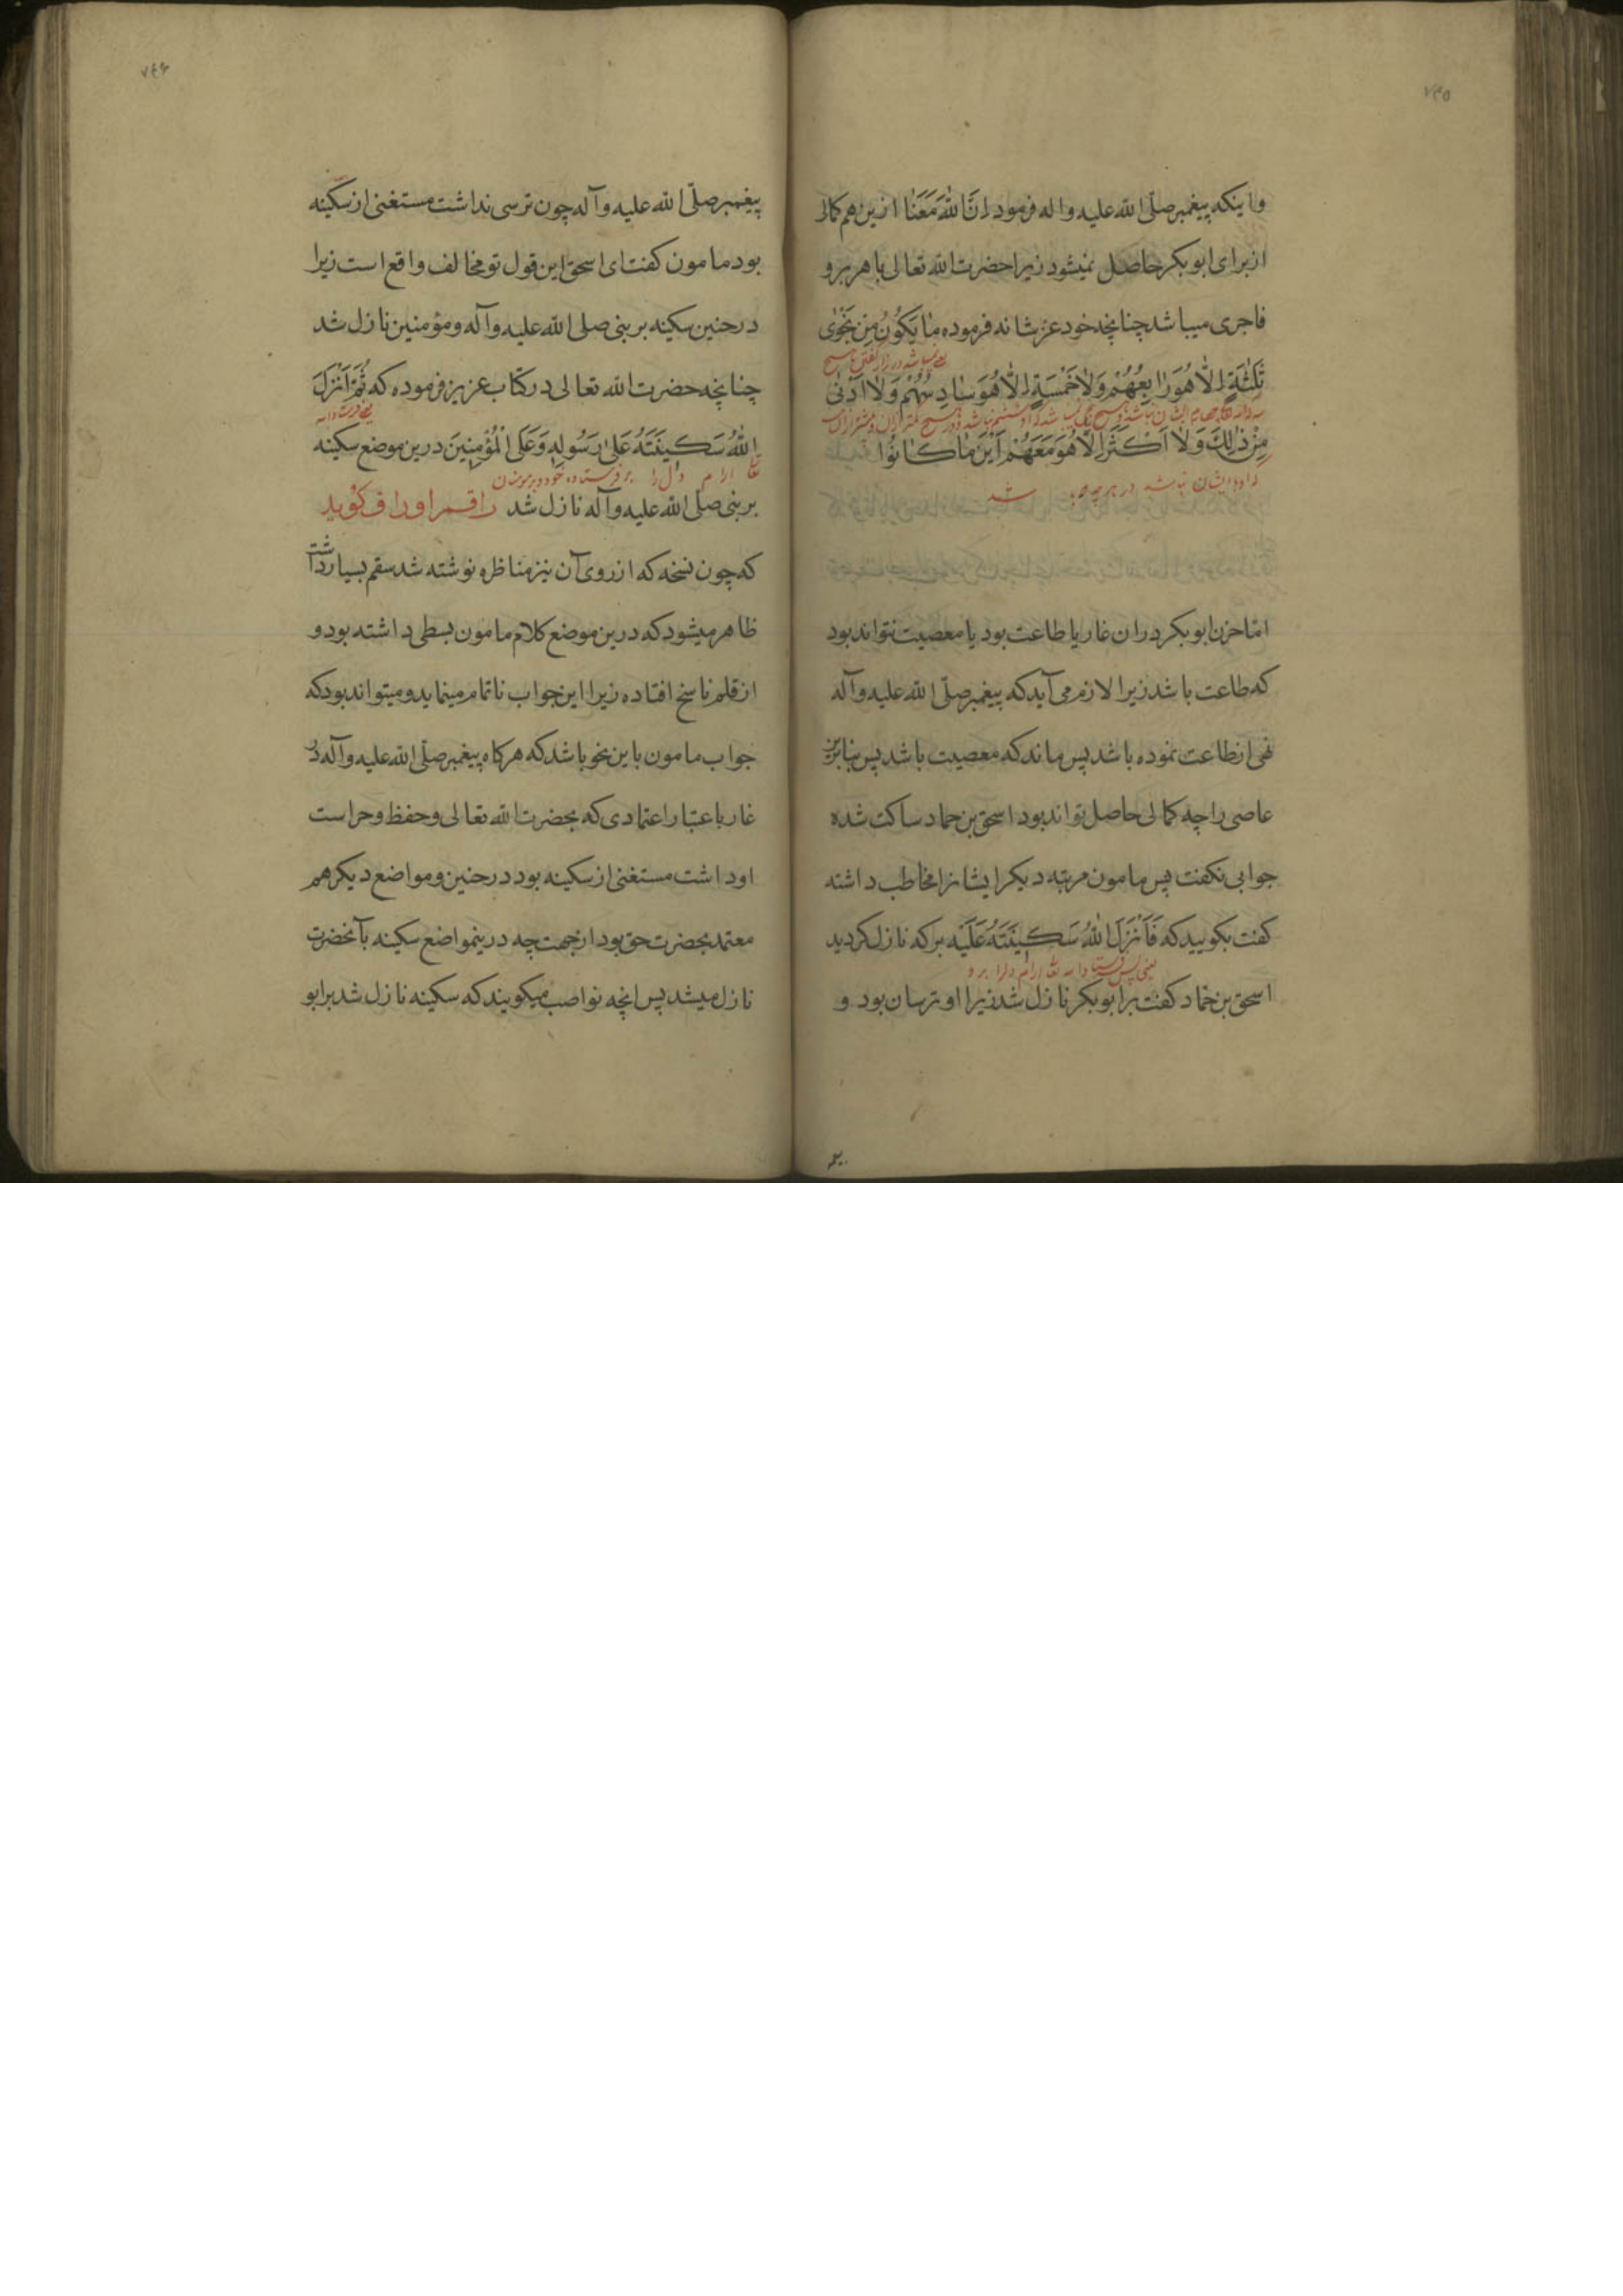 ۷۴۵
و اینکه پیغمبر صلّی الله علیه و اله فرمود اِنَّ اللهَ مَعَنٰا ازین هم کمالی
از برای ابو بکر حاصل نمیشود زیرا حضرت الله تعالی با هر بر و
فاجری میباشد چنانچه خود عز شانه فرموده مٰا یَکُونُ مِنْ نَجْوٰی
ثَلٰثَةٍ اِلّٰا هُوَ رٰابِعُهُمْ وَلٰا خَمْسَةٍ اِلّٰا هُوَ سٰادِسُهُمْ وَلٰا اَدْنٰی
مِنْ ذٰلِكَ وَلٰا اَكْثَرَ اِلّٰا هُوَ مَعَهُمْ اَیْنَ مٰا كٰانُوا
که او با ایشان نباشد در هر چه باشد
امّا حزن ابو بکر دران غار یا طاعت بود یا معصیت نتواند بود
که طاعت باشد زیرا لازم می آید که پیغمبر صلّی الله علیه و آله
نهی از طاعت نموده باشد پس ماند که معصیت باشد پس بنابرین
عاصی را چه کمالی حاصل تواند بود اسحق بن حماد ساکت شده
جوابی نکفت پس مامون مرتبه دیکر ایشانرا مخاطب داشته
کفت بکویید که فَاَنْزَلَ اللهُ سَكینَتَهُ عَلَیْهِ بر که نازل کردید
یعنی پس فرستاد الله تعا ارام دلرا بر و
اسحق بن حماد کفت بر ابو بکر نازل شد زیرا او ترسان بود و
۷۴۶
پیغمبر صلّی الله علیه و آله چون ترسی نداشت مستغنی از سکینه
بود مامون کفت ای اسحق این قول تو مخالف واقع است زیرا
در حنین سکینه بر بنی صلی الله علیه و آله و مؤمنین نازل شد
چنانچه حضرت الله تعالی در کتاب عزیز فرموده که ثُمَّ اَنْزَلَ
یعنی فرستاد الله
اللهُ سَكینَتَهُ عَلیٰ رَسُولِهِ وَعَلَی الْمُؤْمِنینَ درین موضع سکینه
تعا ارام دل را بر فرستاده خود و بر مومنان
بر بنی صلی الله علیه و آله نازل شد راقم اوراق کوید
که چون نسخه که از روی آن نیز مناظره نوشته شد سقم بسیار داشت
ظاهر میشود که درین موضع کلام مامون بسطی داشته بود و
از قلم ناسخ افتاده زیرا این جواب ناتمام مینماید و میتواند بود که
جواب مامون باین نحو باشد که هرکاه پیغمبر صلّی الله علیه و آله در
غار باعتبار اعتمادی که بحضرت الله تعالی و حفظ و حراست
او داشت مستغنی از سکینه بود در حنین و مواضع دیکر هم
معتمد بحضرت حق بود از جهت چه درینمواضع سکینه بآنحضرت
نازل میشد پس انچه نواصب میکویند که سکینه نازل شد بر ابو